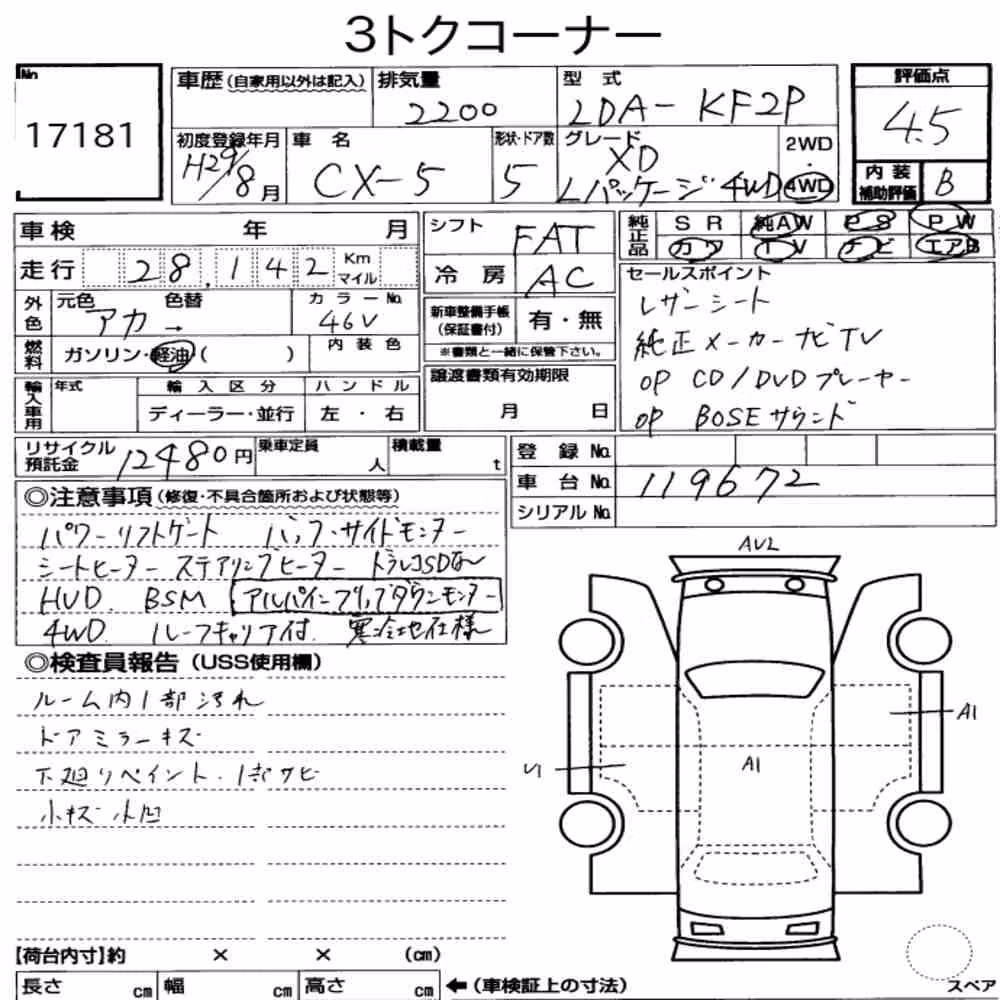 3トクコーナー
No
17181
車歴 (自家用以外は記入)
排気量
2200
型式
LDA- KF2P
評価点
4.5
初度登録年月
H29/8月
車名
CX-5
形状・ドア数
5
グレード
XD
Lパッケージ 4WD
2WD
・
4WD
内装
補助評価
B
車検 年 月
シフト
FAT
純正品
SR 純AW PS PW
カワ TV ナビ エアB
走行 28,142 Km
マイル
冷房
AC
セールスポイント
レザーシート
純正メーカーナビTV
OP CD/DVDプレーヤー
OP BOSEサウンド
外色
元色 色替
アカ →
カラーNo.
46V
新車整備手帳
(保証書付)
有・無
※書類と一緒に保管下さい。
燃料
ガソリン・軽油( )
内装色
譲渡書類有効期限
月 日
輸入車用
年式
輸入区分
ディーラー・並行
ハンドル
左・右
リサイクル
預託金
12480円
乗車定員
人
積載量
t
登録No.
車台No.
119672
シリアルNo.
◎注意事項(修復・不具合箇所および状態等)
パワーリフトゲート バック・サイドモニター
シートヒーター ステアリングヒーター トラレコSDなし
HUD. BSM アルパインフリップダウンモニター
4WD. ルーフキャリア付. 寒冷地仕様
◎検査員報告(USS使用欄)
ルーム内1部汚れ
ドアミラーキズ
下廻りペイント・1部サビ
小キズ 小凹
AU2
A1
A1
U1
【荷台内寸】約 × × (cm)
長さ cm 幅 cm 高さ cm
←(車検証上の寸法)
スペア